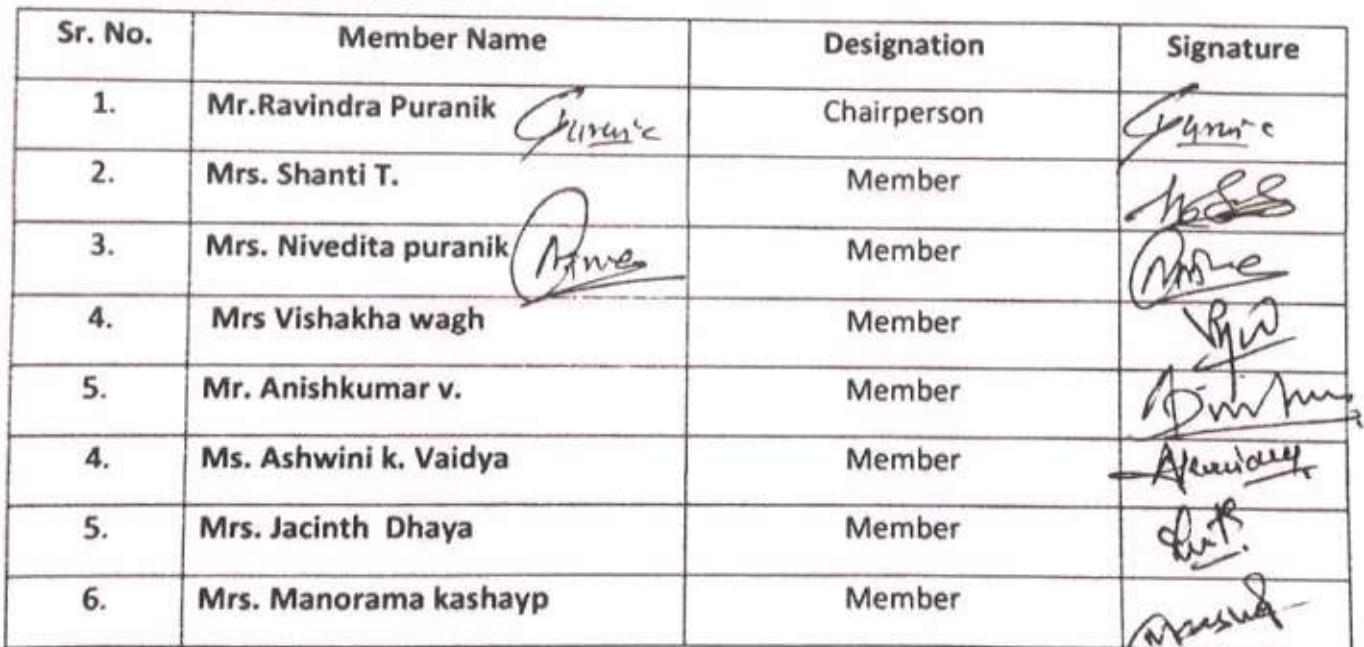 Sr. No. Member Name Designation Signature
1. Mr.Ravindra Puranik Chairperson
2. Mrs. Shanti T. Member
3. Mrs. Nivedita puranik Member
4. Mrs Vishakha wagh Member
5. Mr. Anishkumar v. Member
4. Ms. Ashwini k. Vaidya Member
5. Mrs. Jacinth Dhaya Member
6. Mrs. Manorama kashayp Member